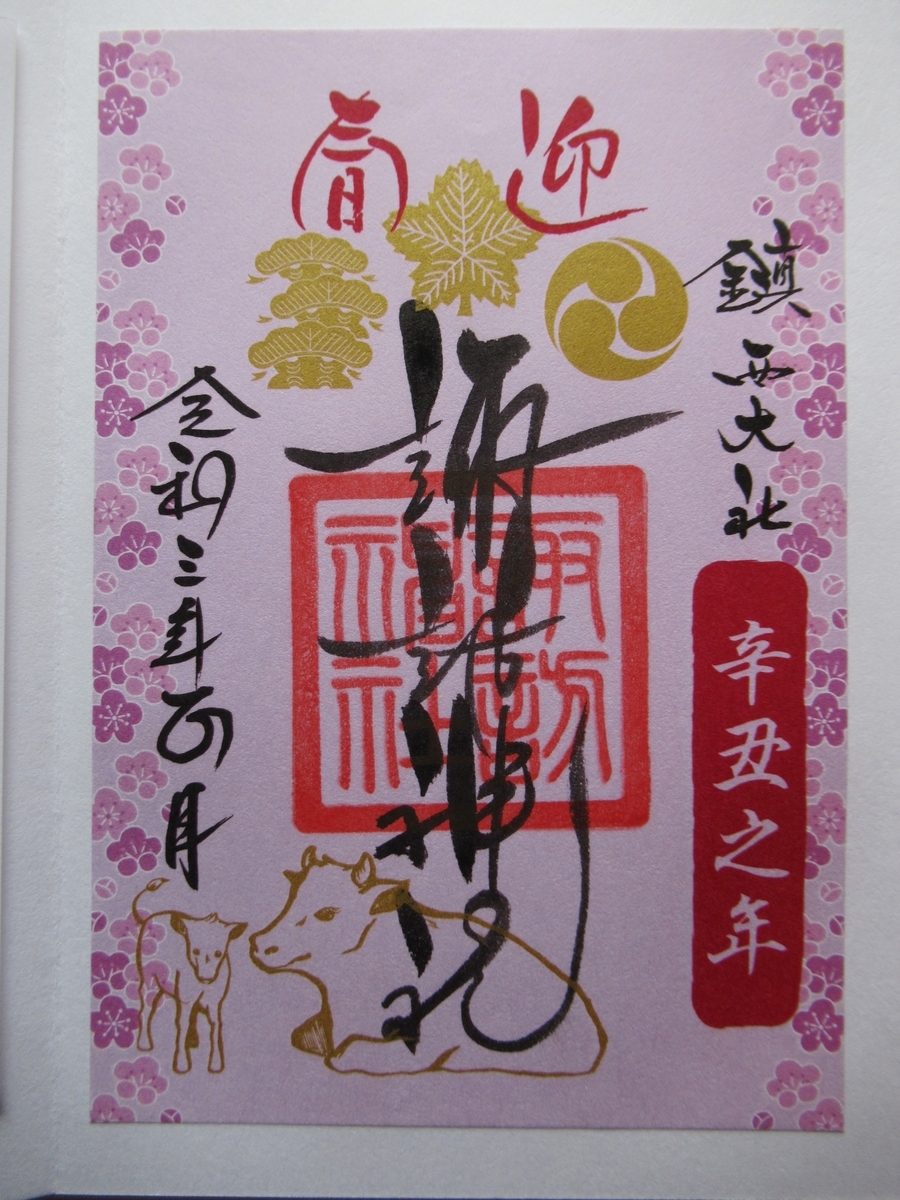 迎春
鎮西大社
辛丑之年
諏訪神社
諏訪
神社
令和三年正月